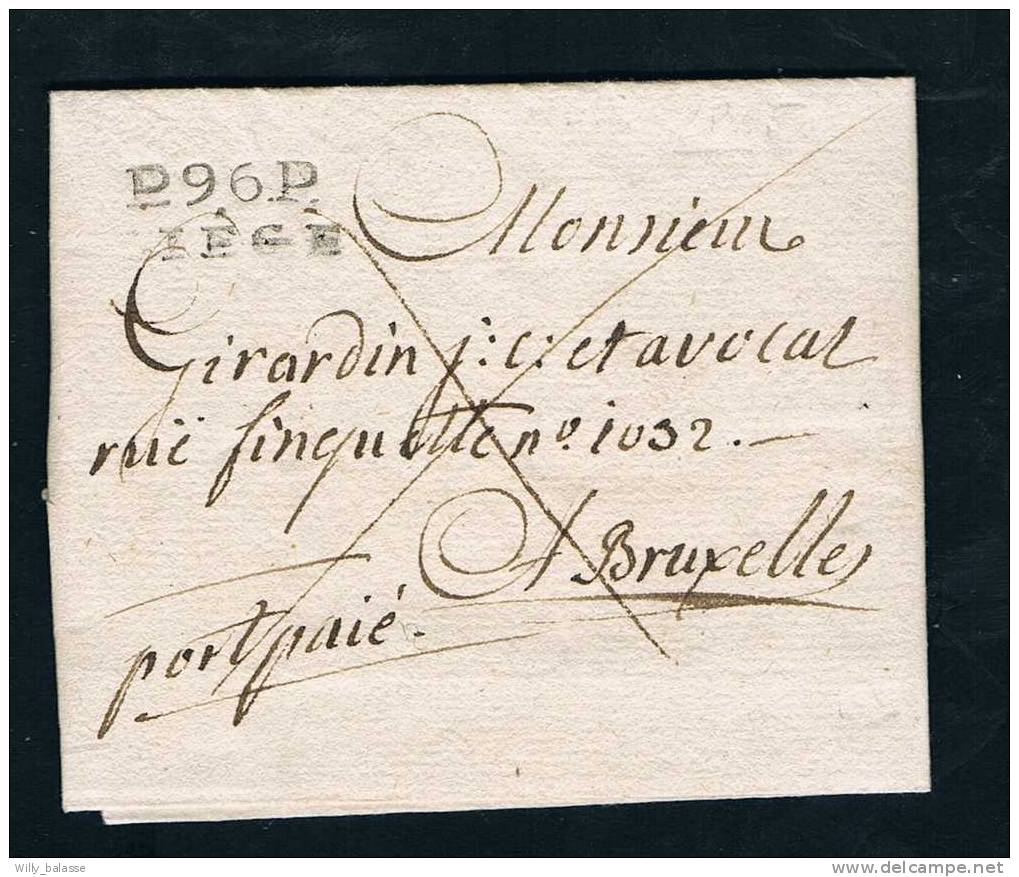 P.96.P.
IEGE
Monsieur
Girardin j: c: et avocat
ruë finquette nº 1032. —
A Bruxelles
port paié.
Willy_balasse
delcampe.net